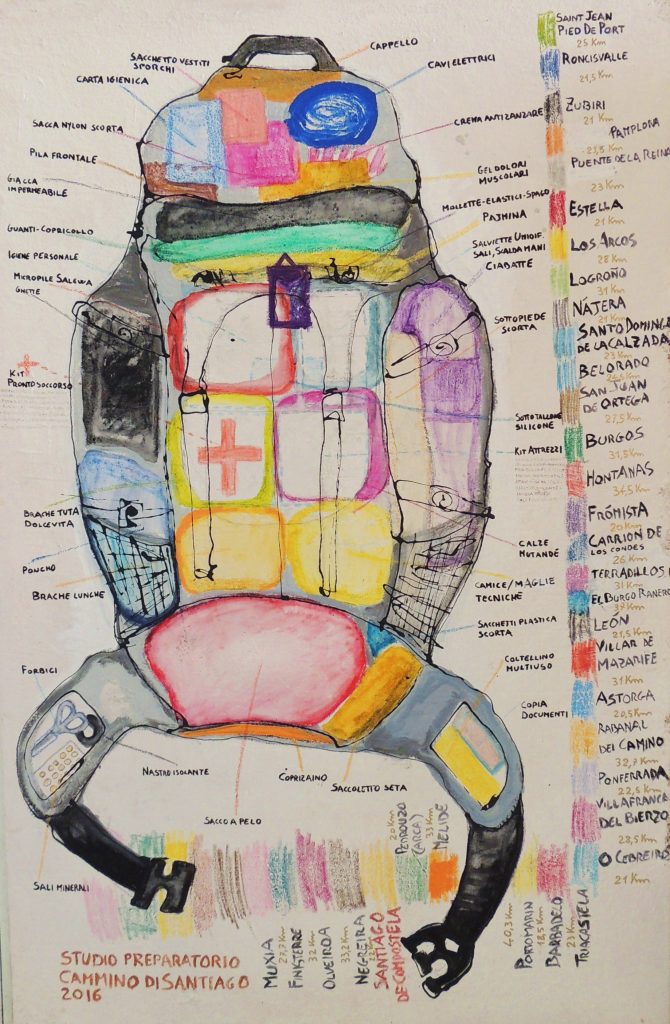 CAPPELLO
SACCHETTO VESTITI
SPORCHI
CARTA IGIENICA
SACCA NYLON SCORTA
PILA FRONTALE
GIACCA
IMPERMEABILE
GUANTI-COPRICOLLO
IGIENE PERSONALE
MICROPILE SALEWA
GHETTE
KIT
PRONTO SOCCORSO
BRACHE TUTA
DOLCEVITA
PONCHO
BRACHE LUNGHE
FORBICI
SALI MINERALI
NASTRO ISOLANTE
SACCO A PELO
COPRIZAINO
SACCOLETTO SETA
CAVI ELETTRICI
CREMA ANTIZANZARE
GEL DOLORI
MUSCOLARI
MOLLETTE-ELASTICI-SPAGO
PAJMINA
SALVIETTE UMIDIF.
SALI, SCALDAMANI
CIABATTE
SOTTOPIEDE
SCORTA
SOTTO TALLONE
SILICONE
KIT ATTREZZI
CALZE
MUTANDE
CAMICE/MAGLIE
TECNICHE
SACCHETTI PLASTICA
SCORTA
COLTELLINO
MULTIUSO
COPIA
DOCUMENTI
SAINT JEAN
PIED DE PORT
25 Km
RONCISVALLE
21,5 Km
ZUBIRI
21 Km
PAMPLONA
23,5 Km
PUENTE DE LA REINA
23 Km
ESTELLA
21 Km
LOS ARCOS
28 Km
LOGROÑO
31 Km
NÁJERA
21 Km
SANTO DOMINGO
DE LA CALZADA
23 Km
BELORADO
SAN JUAN
DE ORTEGA
27,5 Km
BURGOS
31,5 Km
HONTANAS
34,5 Km
FRÓMISTA
20 Km
CARRION DE
LOS CONDES
26 Km
TERRADILLOS
31 Km
EL BURGO RANERO
37 Km
LEÓN
21,5 Km
VILLAR DE
MAZARIFE
31 Km
ASTORGA
20,5 Km
RABANAL
DEL CAMINO
32,7 Km
PONFERRADA
22,5 Km
VILLAFRANCA
DEL BIERZO
28,5 Km
O CEBREIRO
21 Km
TRIACASTELA
23 Km
BARBADELO
18,5 Km
PORTOMARIN
40,3 Km
MELIDE
33 Km
PEDROUZO
(ARCA)
20 Km
SANTIAGO
DE COMPOSTELA
NEGREIRA
33,2 Km
OLVEIROA
32 Km
FINISTERRE
27,7 Km
MUXIA
STUDIO PREPARATORIO
CAMMINO DI SANTIAGO
2016